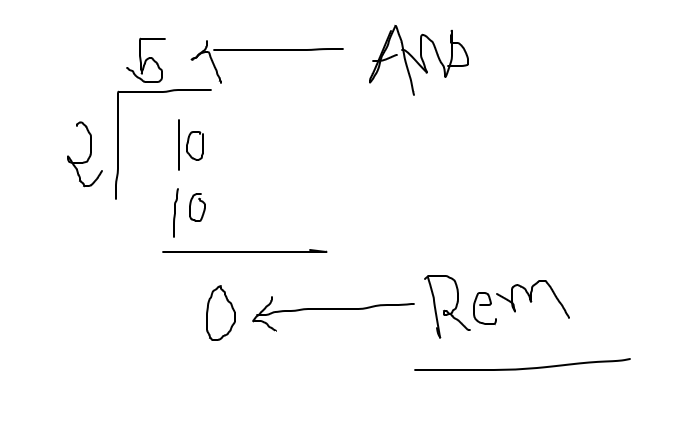 5 ← Ans
2 10
10
0 ← Rem